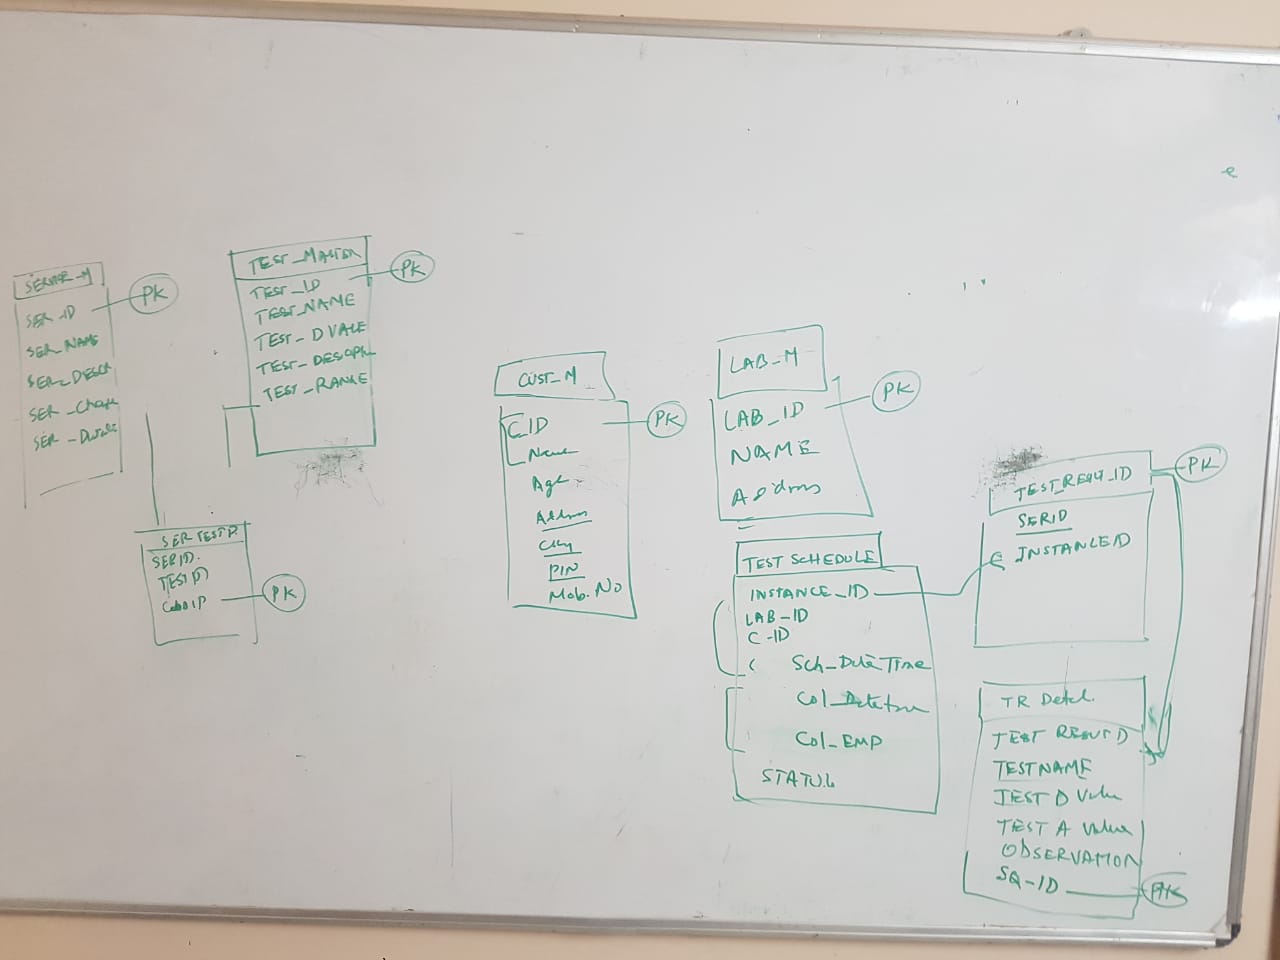 SERVICE_M
SER_ID
PK
SER_NAME
SER_DESCR
SER_Charge
SER_Details
TEST_MASTER
TEST_ID
PK
TEST_NAME
TEST_DVALE
TEST_DESCIPN
TEST_RANGE
SER TEST D.
SER ID.
TEST ID
PK
CUST_M
C_ID
PK
Name
Age
Address
City
PIN
Mob. No
LAB_M
LAB_ID
PK
NAME
Address
TEST SCHEDULE
INSTANCE_ID
LAB_ID
C_ID
Sch_DateTime
Col_Datetime
Col_EMP
STATUS
TEST_RESULT_ID
PK
SERID
INSTANCEID
TR Detail.
TEST RESULT D
TESTNAME
TEST D Value
TEST A Value
OBSERVATION
SQ-ID
PK